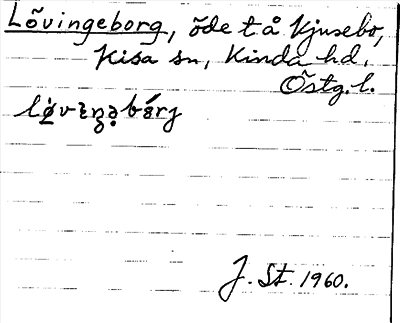 Lövingeborg, öde t å Kjusebo,
Kisa sn, Kinda hd.
Östg. l.
J. St. 1960.